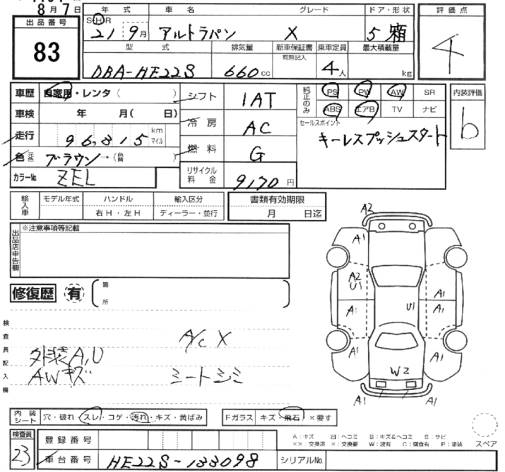 8月7日
出品番号
83
年式 車名 グレード ドア・形状
21 9月 アルトラパン X 5 箱
型式 排気量 新車保証書 乗車定員 最大積載量
DBA-HE22S 660cc 4人 kg
評価点
4
車歴 自家用・レンタ( )
車検 年 月( 日)
走行 96,815 km マイル
色 ブラウン・(替 )
カラーNo. ZEL
シフト 1AT
冷房 AC
燃料 G
リサイクル料金 9170 円
純正のみ PS PW AW SR
ABS エアB TV ナビ
セールスポイント
キーレスプッシュスタート
内装評価
b
輸入車 モデル年式 ハンドル 輸入区分
右H・左H ディーラー・並行
書類有効期限
月 日迄
出品店申告欄
※注意事項等記載
修復歴 有 箇所
検査員記入欄
外装A,U
AWキズ
A/C X
ミートシミ
A2
A1 A1
A2
U1
A1 U1 A1
A1
W2
内装シート 穴・破れ・スレ・コゲ・汚れ・キズ・黄ばみ
Fガラス キズ・飛石・×要す
検査員
23
登録番号
車台番号 HE22S-133098 シリアルNo.
A:キズ U:ヘコミ B:キズ&ヘコミ S:サビ
スペア